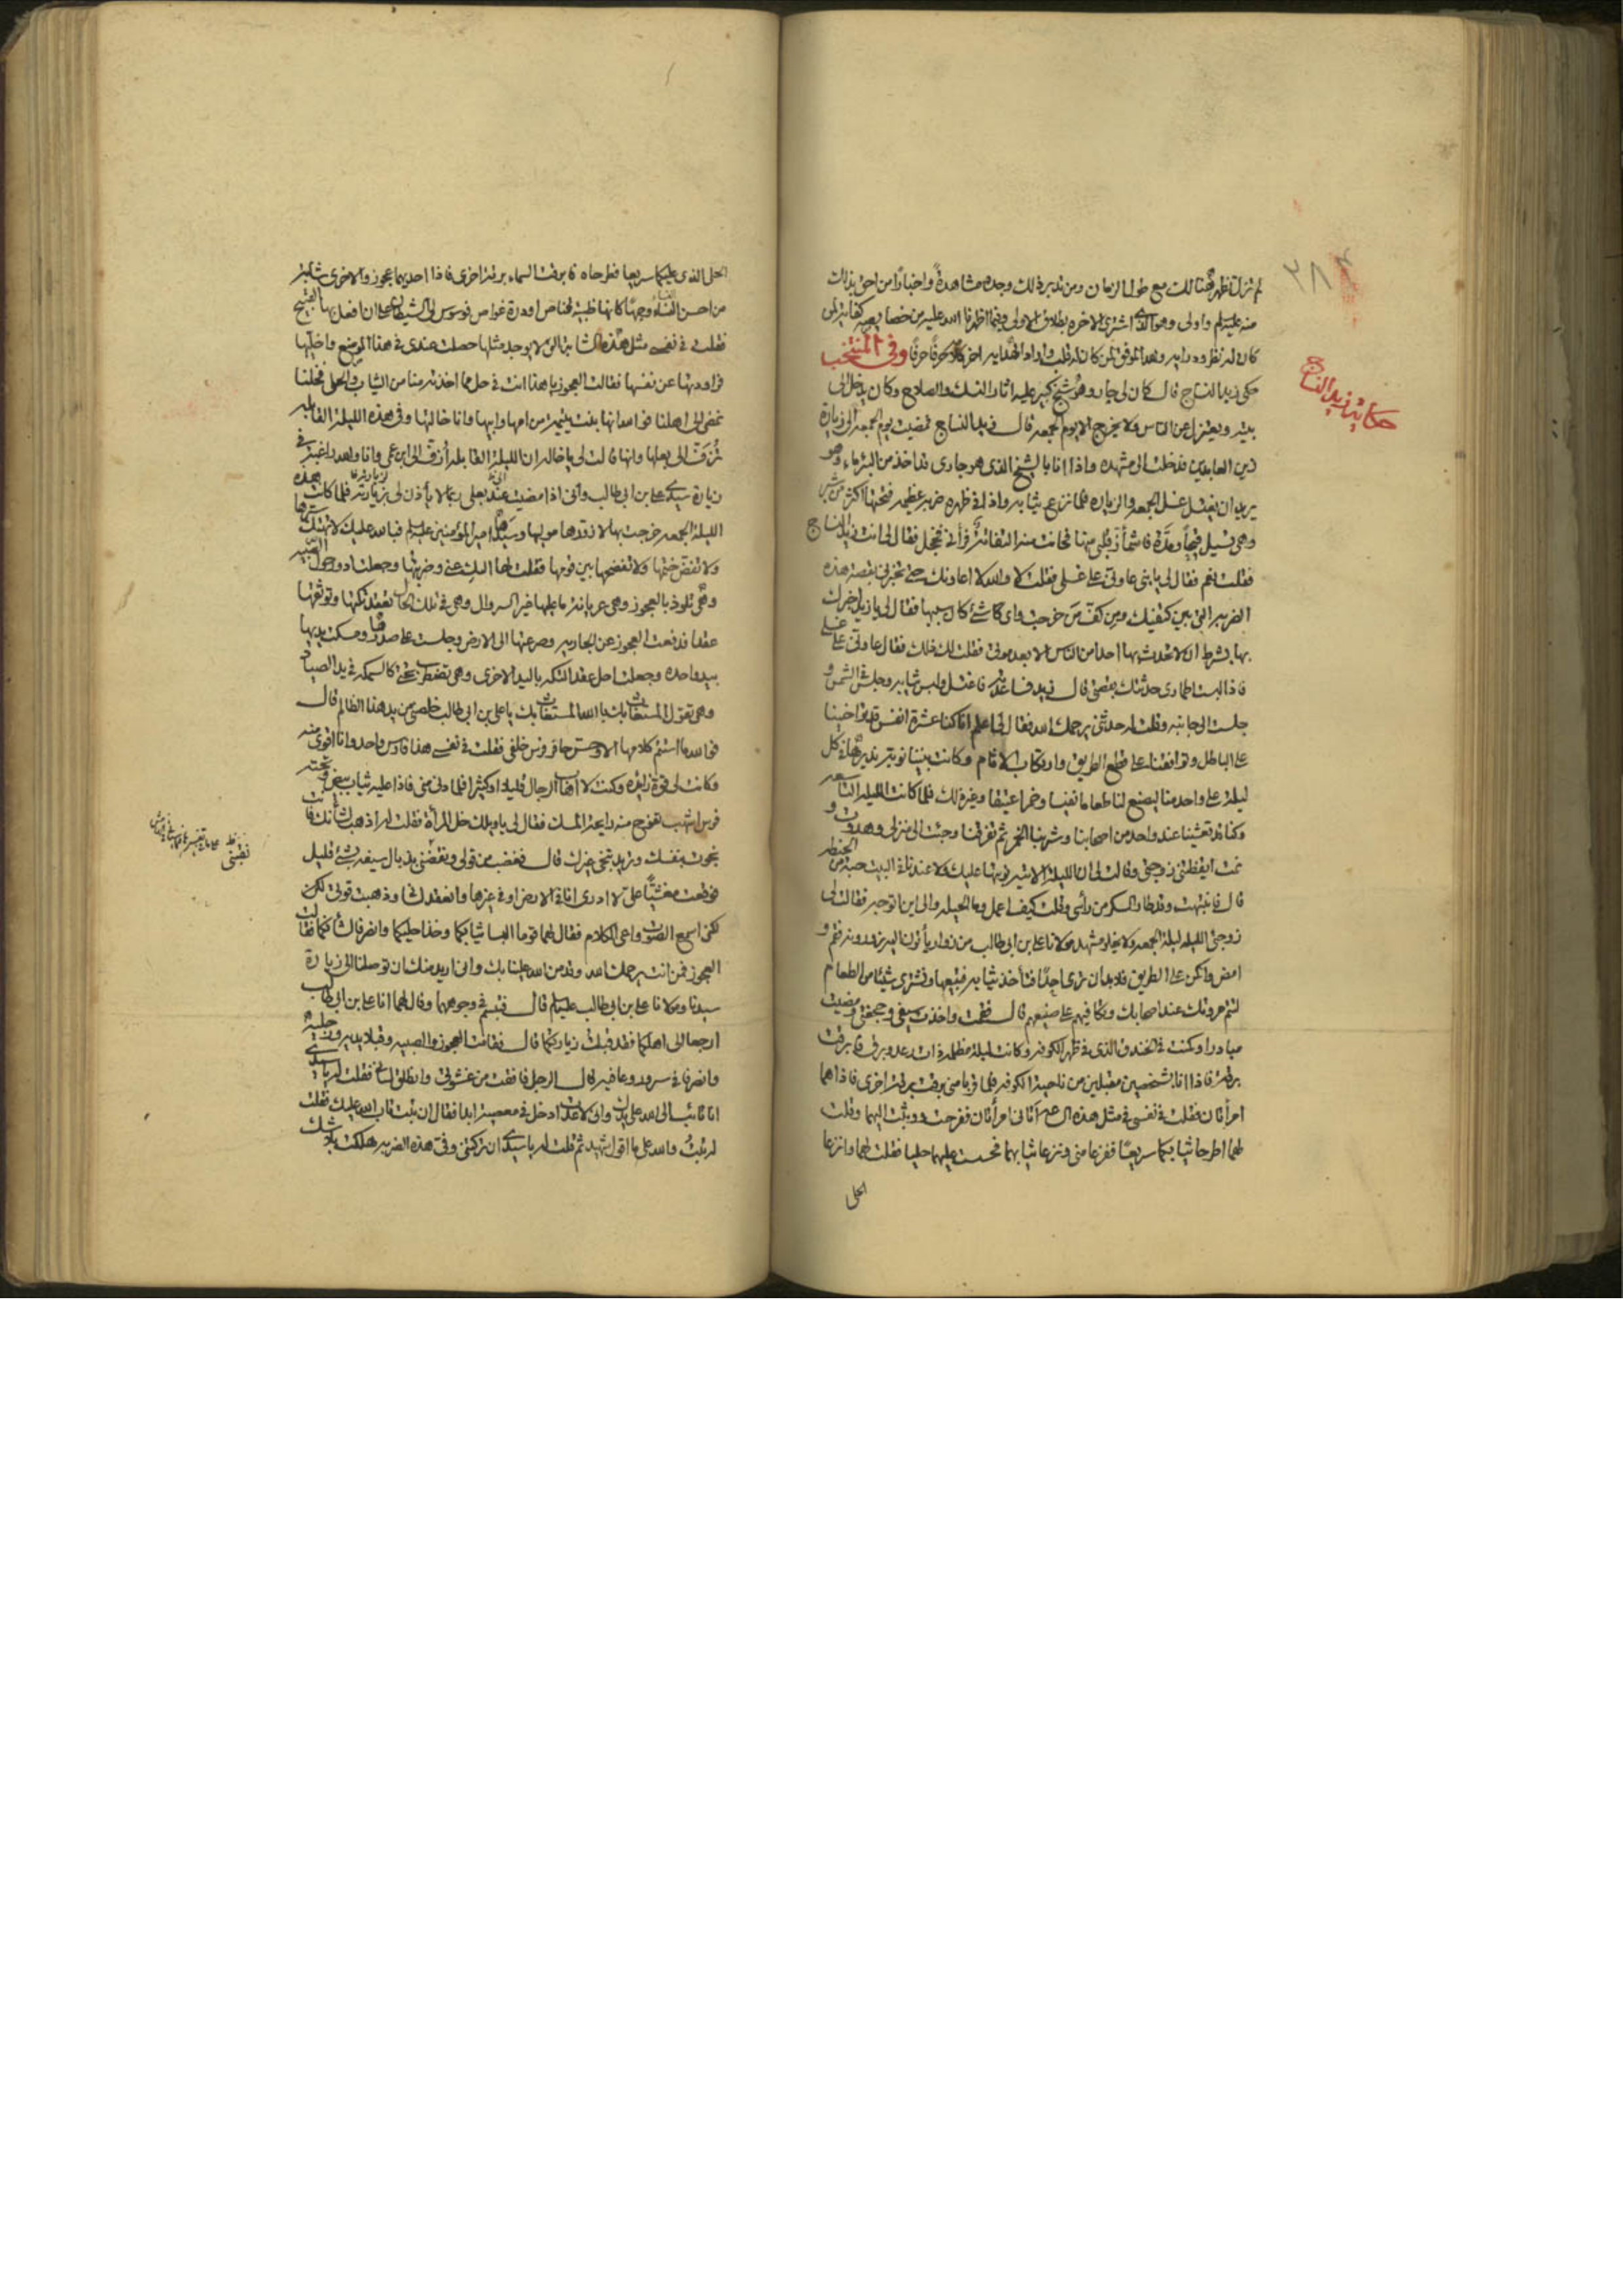 حكاية زيد النساج
لم تزل تظهر هنالك مع طول الزمان ومن تدبر ذلك وجده مشاهدةً واخباراً من احق بذلك
منه عليه السلم واولى وهو الذى اشترى الاخرة بطلاق الاولى وفيما اظهرنا الله عليه من خصايصه كفاية لمن
كان له نظر ودراية والله الموفق لمن كان له قلب واراد الهداية اخر كلامه حرفاً حرفاً وفى المنتخب
حكى زيد النساج قال كان لى جار وهو شيخ كبير عليه اثار النسك والصلاح وكان يدخل الى
بيته ويعتزل عن الناس ولا يخرج الا يوم الجمعة قال زيد النساج فمضيت يوم الجمعة الى زيارة
زين العابدين فدخلت الى مشهده واذا انا بالشيخ الذى هو جارى قد اخذ من البئر ماء وهو
يريد ان يغتسل غسل الجمعة والزيارة فلما نزع ثيابه واذا فى ظهره ضربة عظيمة فتحتها اكثر من شبر
وهى تسيل قيحاً ومدة فاشمأز قلبى منها فحانت منه التفاتة فرأنى فخجل فقال لى انت زيد النساج
فقلت نعم فقال لى يا بنى عاونى على غسلى فقلت لا والله لا اعاونك حتى تخبرنى بقصة هذه
الضربة التى بين كتفيك ومن كف من خرجت واى شئ كان سببها فقال لى يا زيد اخبرك
بها بشرط ان لا تحدث بها احدا من الناس الا بعد موتى فقلت لك ذلك فقال عاونى على غسلى
فاذا لبست اطمارى حدثتك بقصتى قال زيد فساعدته فاغتسل ولبس ثيابه وجلس فى الشمس و
جلست الى جانبه وقلت له حدثنى يرحمك الله فقال لى اعلم انا كنا عشرة انفس قد تواخينا
على الباطل وتوافقنا على قطع الطريق وارتكاب الاثام وكانت بيننا نوبة نديرها فى كل
ليلة على واحد منا ليصنع لنا طعاما نفيسا وخمرا عتيقا وغير ذلك فلما كانت الليلة التاسعة
وكنا قد تعشينا عند واحد من اصحابنا وشربنا الخمر ثم تفرقنا وجئت الى منزلى وهدوت و
نمت ايقظتنى زوجتى وقالت لى ان الليلة الاتية نوبتها عليك ولا عندنا فى البيت حبة من الحنطة
قال فانتبهت وقد طار السكر من رأسى وقلت كيف اعمل وما الحيلة والى اين اتوجه فقالت لى
زوجتى الليلة ليلة الجمعة ولا يخلو مشهد مولانا على بن ابى طالب من زوار يأتون اليه يزورونه فقم و
امض واكمن على الطريق فلابد ان ترى احداً فتأخذ ثيابه فتبيعها وتشترى شيئا من الطعام
لتتم مروتك عند اصحابك وتكافيهم على صنيعهم قال فقمت واخذت سيفى وحجفتى ومضيت
مبادرا وكمنت فى الخندق الذى فى ظهر الكوفة وكانت ليلة مظلمة ذات رعد وبرق فابرقت
برقة فاذا انا بشخصين مقبلين من ناحية الكوفة فلما قربا منى برقت برقة اخرى فاذا هما
امرأتان فقلت فى نفسى فى مثل هذه الساعة اتانى امرأتان ففرحت ووثبت اليهما وقلت
لهما اطرحا ثيابكما سريعًا ففزعا منى ونزعا ثيابهما فحسست عليهما حليا فقلت لهما وانزعا
الحلى
الحلى الذى عليكما سريعا فطرحاه فابرقت السماء برقة اخرى فاذا احديهما عجوز والاخرى شابة
من احسن النساء وجهًا كانها ظبية قناص او درة غواص فوسوس لى الشيطان على ان افعل بها القبيح
فقلت فى نفسى مثل هذه الشابة التى لا يوجد مثلها حصلت عندى فى هذا الموضع واخليها
فراودتها عن نفسها فقالت العجوز يا هذا انت فى حل مما اخذته منا من الثياب والحلى فخلنا
نمضى الى اهلنا فو الله انها بنت يتيمة من امها وابيها وانا خالتها وفى هذه الليلة القابلة
تزف الى بعلها وانها قالت لى يا خالة ان الليلة القابلة ازف الى ابن عمى وانا والله راغبة فى
زيارة سيدى على بن ابى طالب وانى اذا مضيت عند بعلى ربما لا يأذن لى بزيارته فلما كانت هذه
الليلة الجمعة خرجت بها لازورها مولاها وسيدها امير المؤمنين عليه السلم فبالله عليك لا تهتك سترها
ولا تفض ختمها ولا تفضحها بين قومها فقلت لها اليك عنى وضربتها وجعلت ادور حول الصبية
وهى تلوذ بالعجوز وهى عريانة ما عليها غير السروال وهى فى تلك الحال تعقد تكتها وتوثقها
عقدا فدفعت العجوز عن الجارية وصرعتها الى الارض وجلست على صدرها ومسكت يديها
بيد واحدة وجعلت احل عقد التكة باليد الاخرى وهى تضطرب تحتى كالسمكة فى يد الصياد
وهى تقول المستغاث بك يا الله المستغاث بك يا على بن ابى طالب خلصنى من يد هذا الظالم قال
فو الله ما استتم كلامها الا وحس حافر فرس خلفى فقلت فى نفسى هذا فارس واحد وانا اقوى منه
وكانت لى قوة زايدة وكنت لا اهاب الرجال قليلا او كثيرا فلما دنى منى فاذا عليه ثياب بيض وتحته
فرس اشهب تفوح منه رايحة المسك فقال لى يا ويلك خل المرأة فقلت له اذهب لشأنك فانت
نجوت بنفسك وتريد تنجى غيرك قال فغضب من قولى ونفضنى بذبال سيفه بشئ قليل
فوقعت مغشيًّا على لا ادرى انا فى الارض او فى غيرها وانعقد لسانى وذهبت قوتى لكن
لكنى اسمع الصوت واعى الكلام فقال لهما قوما البسا ثيابكما وخذا حليكما وانصرفا لشأنكما فقالت
العجوز فمن انت يرحمك الله وقد من الله علينا بك وانى اريد منك ان توصلنا الى زيارة
سيدنا ومولانا على بن ابى طالب عليه السلم قال فتبسم فى وجوههما وقال لهما انا على بن ابى طالب
ارجعا الى اهلكما فقد قبلت زيارتكما قال فقامت العجوز والصبية وقبلا يديه ورجليه
وانصرفا فى سرور وعافية قال الرجل فافقت من غشوتى وانطلق لسانى فقلت له يا سيدى
انا تائب الى الله على يدك وانى لاعدت ادخل فى معصية ابدا فقال ان تبت تاب الله عليك فقلت
له تبت والله على ما اقول شهيد ثم قلت له يا سيدى ان تركتنى وفى هذه الضربة هلكت بلا شك